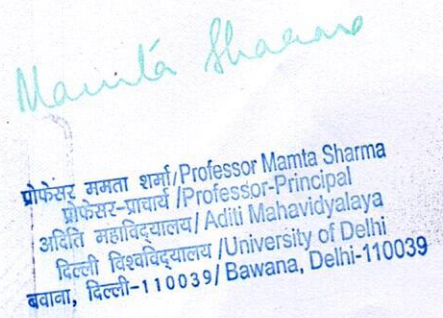 Mamta Sharma
प्रोफेसर ममता शर्मा/Professor Mamta Sharma
प्रोफेसर-प्राचार्य /Professor-Principal
अदिति महाविद्यालय/ Aditi Mahavidyalaya
दिल्ली विश्वविद्यालय /University of Delhi
बवाना, दिल्ली-110039/ Bawana, Delhi-110039